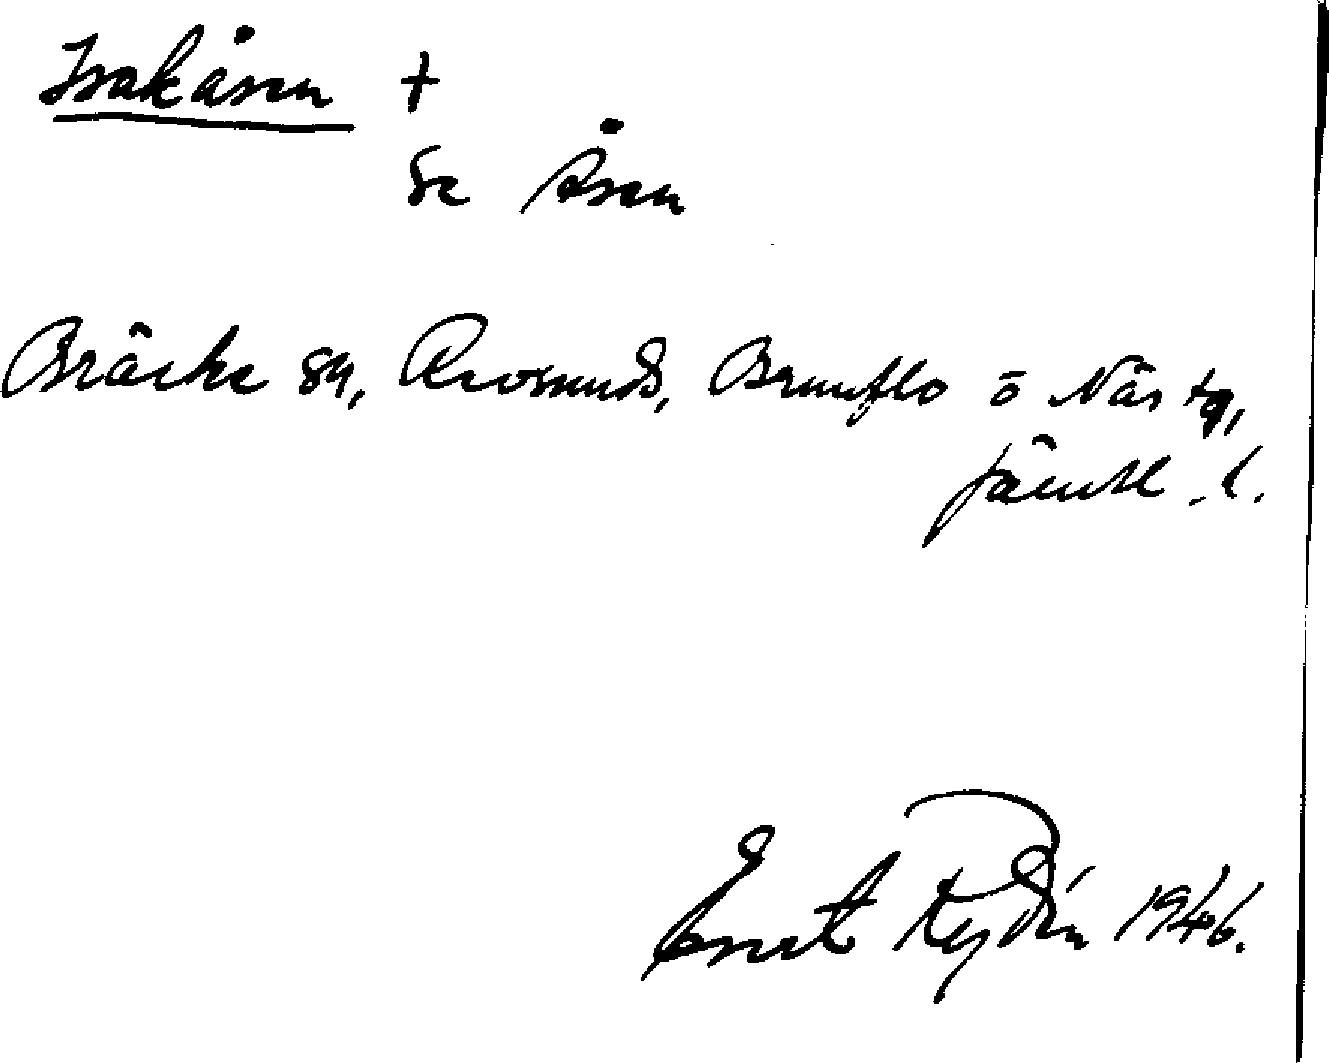 Isakåsen +
Se Åsen
Bräcke sn, Revsunds, Brunflo o Näs tg,
Jämtl. l.
Ernst Rydén 1946.